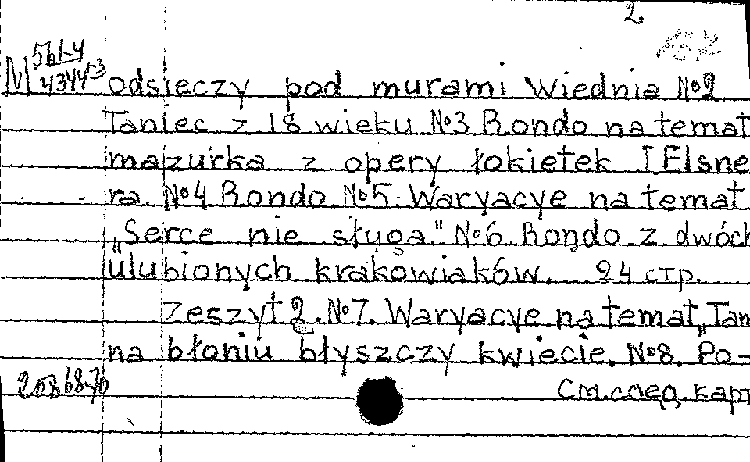 2.
М 561-4
4344-3
odsieczy pod murami Wiednia №2
Taniec z 18 wieku №3 Rondo na temat
mazurka z opery Łokietek I Elsne
ra. №4 Rondo №5. Waryacye na temat
„Serce nie sługa." №6. Rondo z dwóch
ulubionych krakowiaków. 24 стр.
Zeszyt 2. №7. Waryacye na temat „Tam
na błoniu błyszczy kwiecie. №8. Po=
См. след. карт